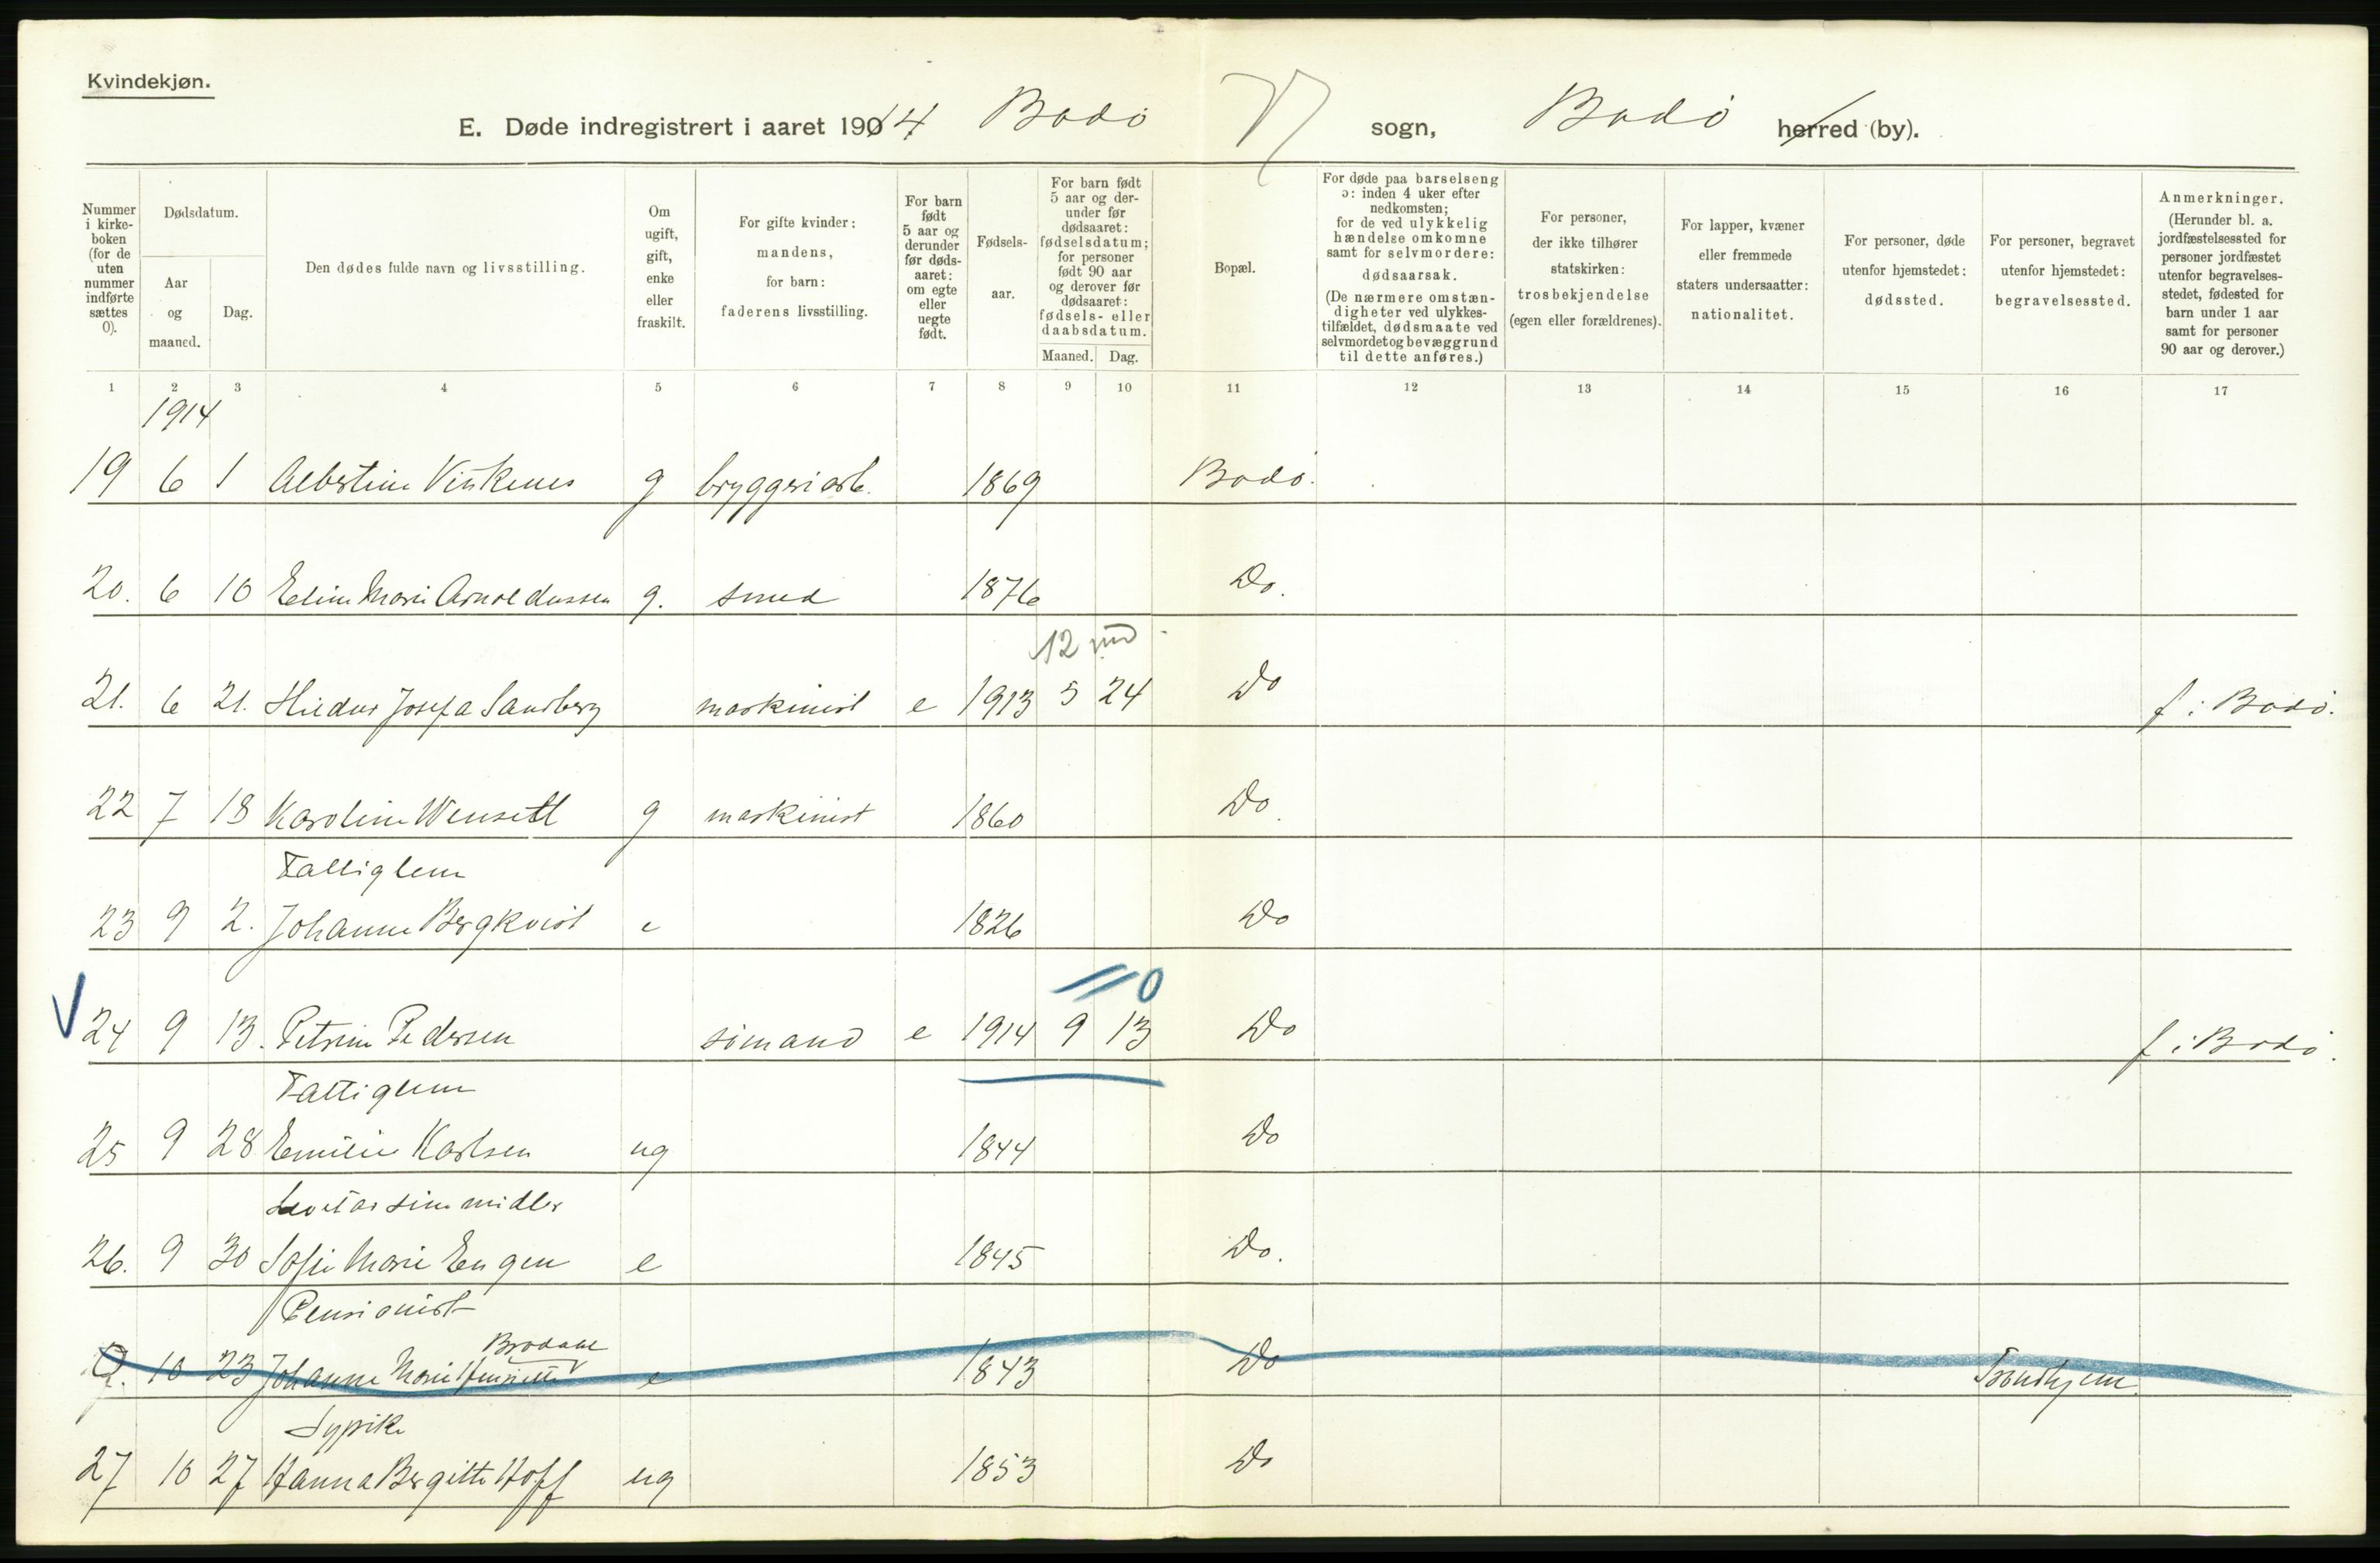 Kvindekjøn.
E. Døde indregistrert i aaret 1914 Bodø sogn, Bodø herred (by).
Nummer i kirke-boken (for de uten nummer indførte sættes 0).
Dødsdatum.
Aar og maaned.
Dag.
Den dødes fulde navn og livsstilling.
Om ugift, gift, enke eller fraskilt.
For gifte kvinder: mandens, for barn: faderens livsstilling.
For barn født 5 aar og derunder før døds-aaret: om egte eller uegte født.
Fødsels-aar.
For barn født 5 aar og der-under før dødsaaret: fødselsdatum; for personer født 90 aar og derover før dødsaaret: fødsels- eller daabsdatum.
Maaned. Dag.
Bopæl.
For døde paa barselseng ɔ: inden 4 uker efter nedkomsten; for de ved ulykkelig hændelse omkomne samt for selvmordere: dødsaarsak. (De nærmere omstæn-digheter ved ulykkes-tilfældet, dødsmaate ved selvmordet og bevæggrund til dette anføres.)
For personer, der ikke tilhører statskirken: trosbekjendelse (egen eller forældrenes).
For lapper, kvæner eller fremmede staters undersaatter: nationalitet.
For personer, døde utenfor hjemstedet: dødssted.
For personer, begravet utenfor hjemstedet: begravelsessted.
Anmerkninger. (Herunder bl. a. jordfæstelsessted for personer jordfæstet utenfor begravelses-stedet, fødested for barn under 1 aar samt for personer 90 aar og derover.)
1 2 3 4 5 6 7 8 9 10 11 12 13 14 15 16 17
1914
19 6 1 Albertine Viskenes g bryggeriarb. 1869 Bodø.
20. 6 10 Eline Marie Arnoldussen g. smed 1876 Do.
12 md
21. 6 21. Josefa Sandberg maskinist e 1913 5 24 Do f i Bodø.
22 7 18 Karoline Wensell g maskinist 1860 Do.
Fattiglem
23 9 2. Johanne Bergkvist e 1826 Do
0
24 9 13. Petrine Pedersen sømand e 1914 9 13 Do f i Bodø.
Fattiglem
25 9 28 Emilie Karlsen ug 1844 Do
Levet av sine midler
26. 9 30 Sofie Marie Engen e 1845 Do.
Pensionist
Brodahl
0. 10 23 Johanne Marie Henriette e 1843 Do Trondhjem
Sypike
27 10 27 Hanna Bergitte Hoff ug 1853 Do